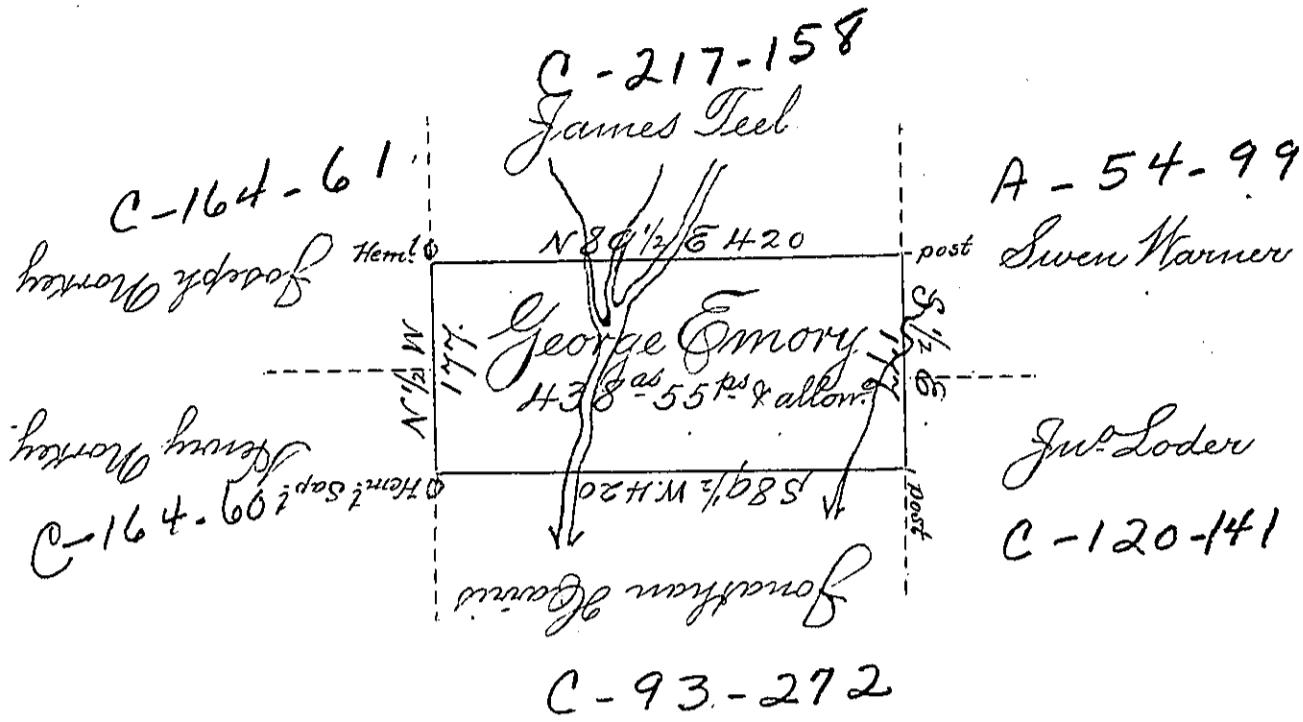 C-217-158
James Teel
C-164-61
Joseph Norkey
A-54-99
Swen Warner
Heml.
N 89 1/2 E 420
post
George Emory
438 as - 55 ps & allow.
N 1/2 W
177.
S 1/2 E
177
Henry Norkey.
C-164-60
Heml. Sapl.
S 89 1/2 W. 420
post
Jno. Loder
C-120-141
Jonathan Harris
C-93-272